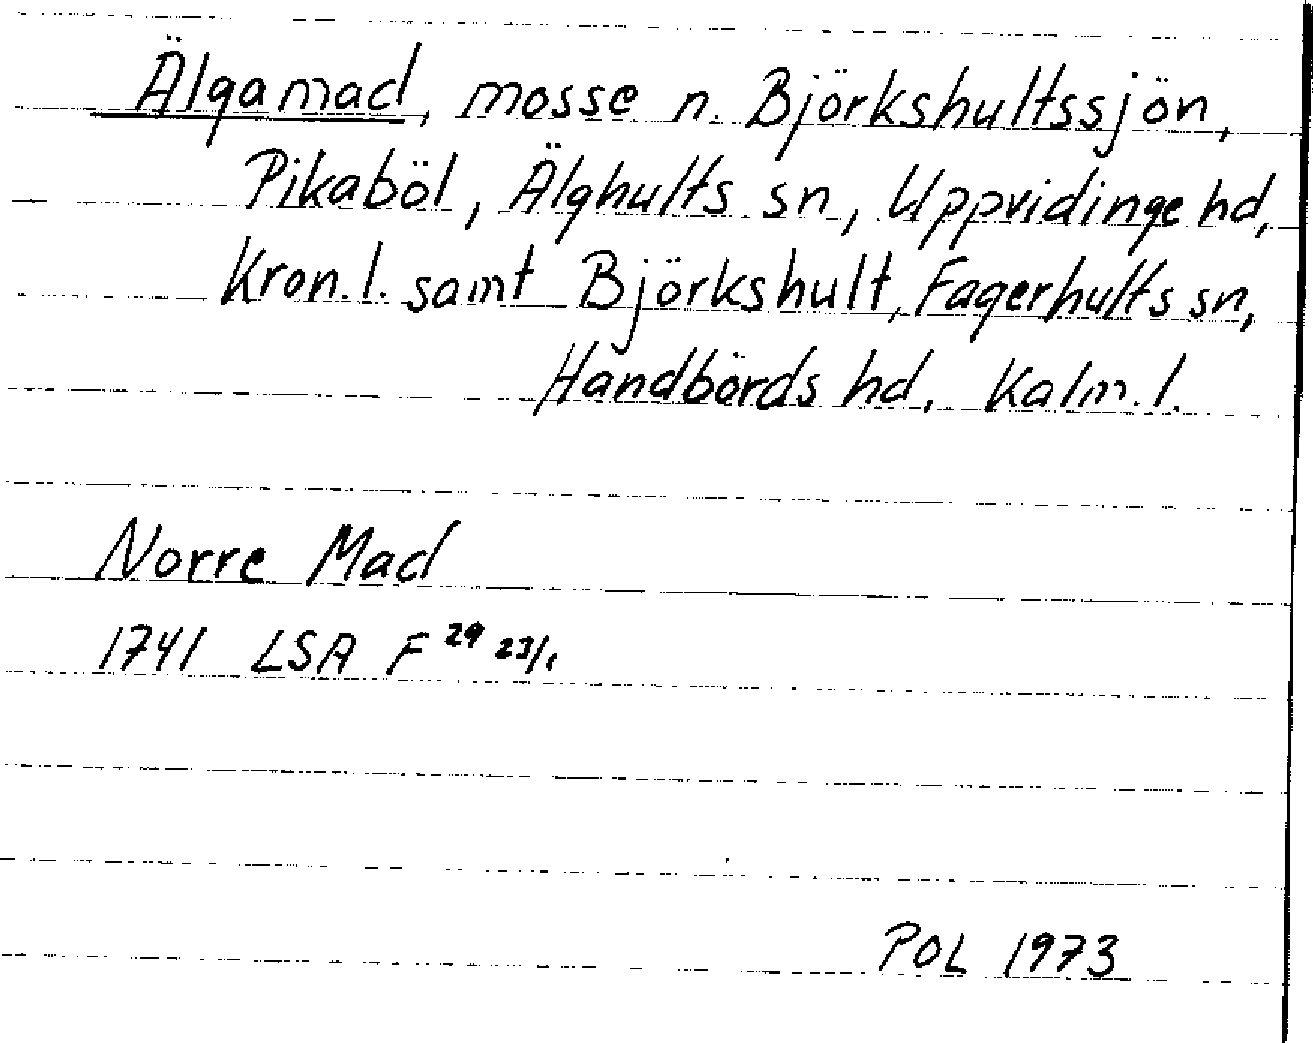 Älgamad, mosse n. Björkshultssjön,
Pikaböl, Älghults sn, Uppvidinge hd,
Kron.l. samt Björkshult, Fagerhults sn,
Handbörds hd, Kalm.l.
Norre Mad
1741 LSA F 29 23/1
POL 1973